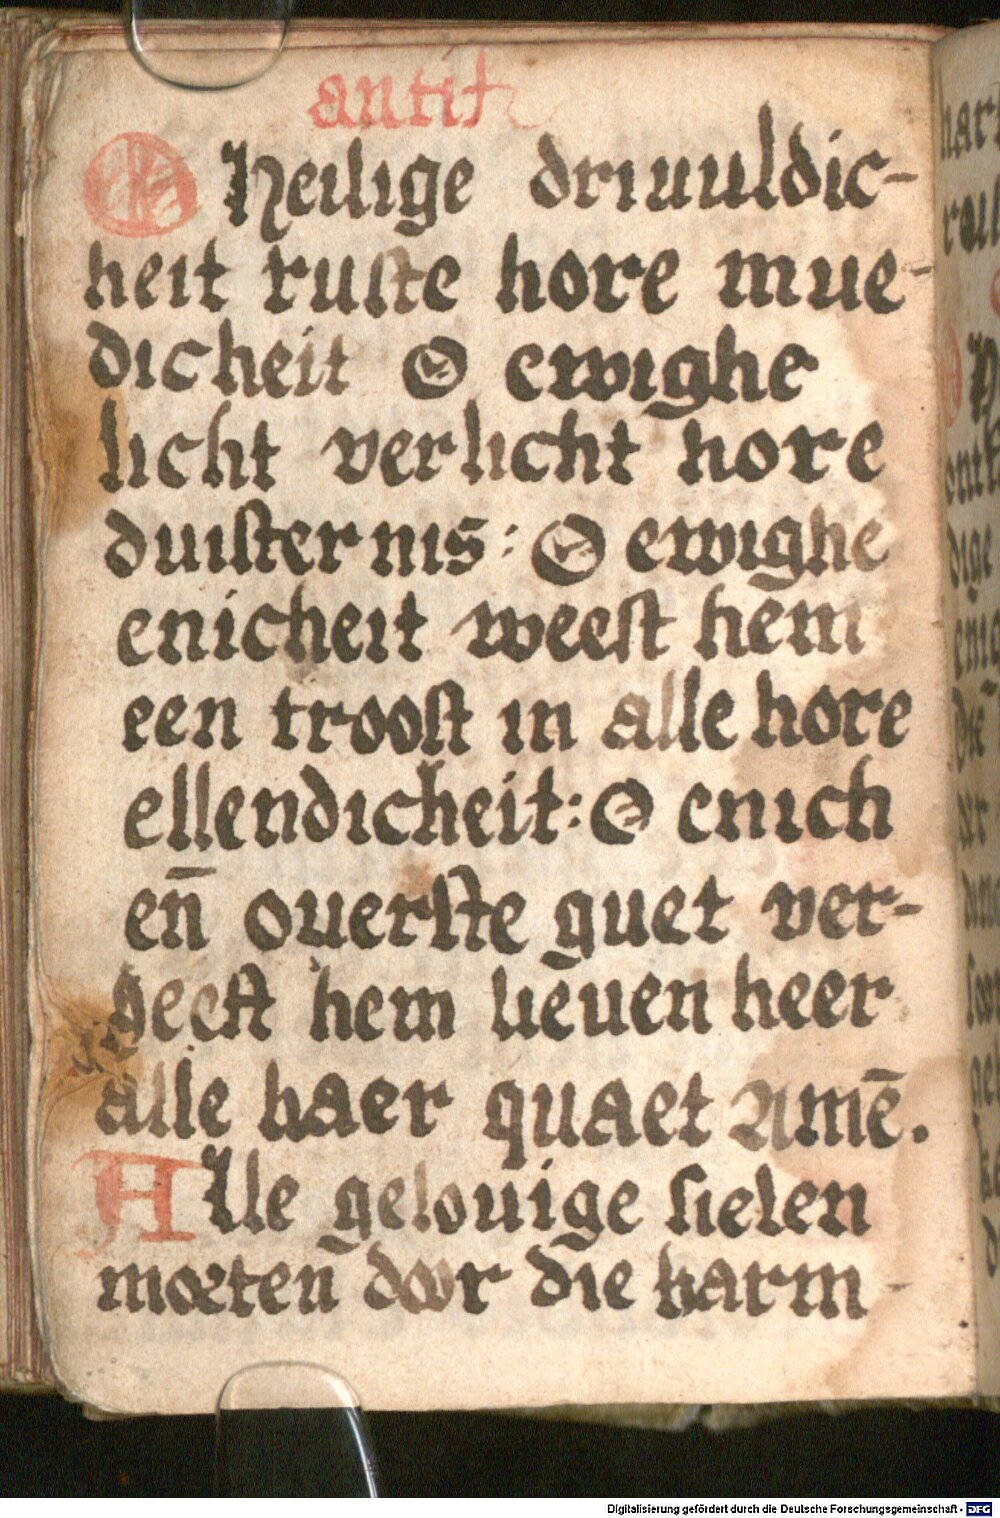 antif
O Heilige driuuldic-
heit ruste hore mue-
dicheit O ewighe
licht verlicht hore
duisternis: O ewighe
enicheit weest hem
een troost in alle hore
ellendicheit: O enich
en̄ ouerste guet ver-
geeft hem lieuen heer
alle haer quaet Amē.
Alle gelouige sielen
moeten door die barm-
Digitalisierung gefördert durch die Deutsche Forschungsgemeinschaft - DFG